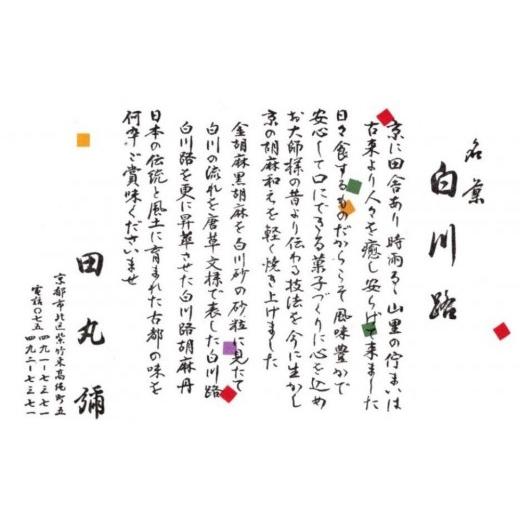 名菓
白川路
京に田舎あり 時雨るゝ山里の佇まいは
古来より人々を癒し安らげて来ました
日々食するものだからこそ 風味豊かで
安心して口にできる菓子づくりに心を込め
お大師様の昔より伝わる技法を今に生かし
京の胡麻和えを軽く焼き上げました
金胡麻黒胡麻を白川砂の砂粒に見たて
白川の流れを唐草文様で表した白川路
白川路を更に昇華させた白川路胡麻丹
日本の伝統と風土に育まれた古都の味を
何卒ご賞味くださいませ
田丸彌
京都市北区紫竹東高縄町五
電話〇七五 四九一‐七三七一
四九二‐七三七一